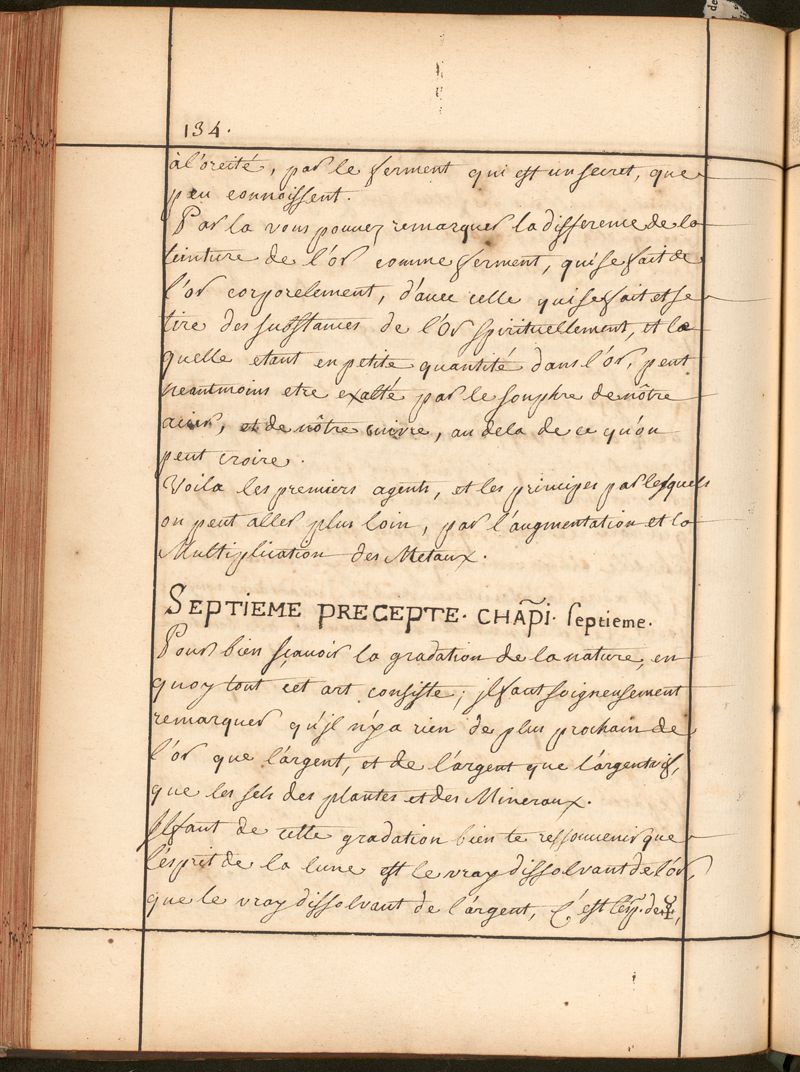 134.
à l'oreité, par le ferment qui est un secret, que
peu connoissent.
Par la vous pouvez remarquer la difference de la
teinture de l'or comme ferment, qui se fait de
l'or corporelement, d'avec celle qui se fait et se
tire des substances de l'or spirituellement, et la
quelle etant en petite quantité dans l'or, peut
neantmoins etre exalté par le souphre de nôtre
acier, et de nôtre cuivre, au dela de ce qu'on
peut croire.
Voila les premiers agents, et les principes par lesquels
on peut aller plus loin, par l'augmentation et la
Multiplication des Metaux.
SEPTIEME PRECEPTE. CHAPI. Septieme.
Pour bien sçavoir la gradation de la nature, en
quoy tout cet art consiste; jl faut soigneusement
remarquer qu'jl n'y a rien de plus prochain de
l'or que l'argent, et de l'argent que l'argent vif,
que les sels des plantes et des Mineraux.
Jl faut de cette gradation bien te ressouvenir que
l'esprit de la lune est le vray dissolvant de l'or,
que le vray dissolvant de l'argent, c'est l'esp. de ☿,